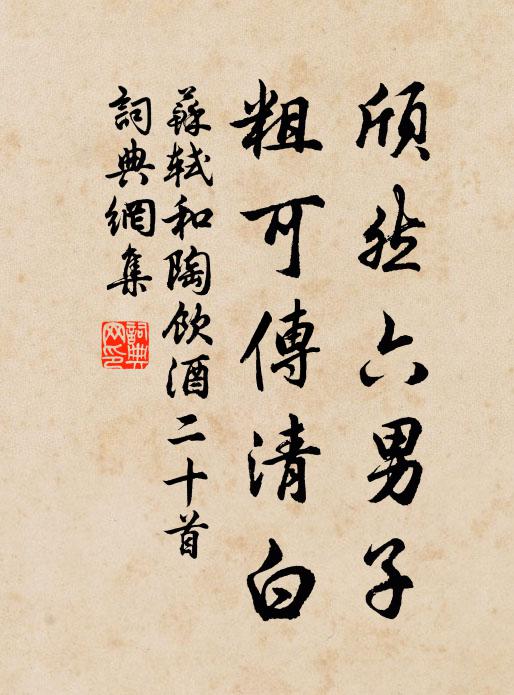 頎然六男子
粗可傳清白
蘇軾和陶飲酒二十首
詞典網集
詞典網印